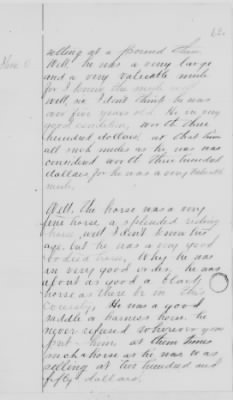 22.
selling at a pound then.
Well, he was a very large
and a very valuable mule
for I knew the mule well
well, sir I don't think he was
over five years old. He in very
good condition, worth three
hundred dollars, at that time
all such mules as he was was
considered worth three hundred
dollars for he was a very valuable
mule.
Well. The horse was a very
fine horse, a splended riding
horse, well I don't know his
age. but he was a very good
bodied horse, Why he was
in very good order, he was
about as good a blark
horse as there be in this
county, He was a good
saddle a harness horse. he
never refused wherever you
put him at them times
such a horse as he was was
selling at two hundred and
fifty dollars.